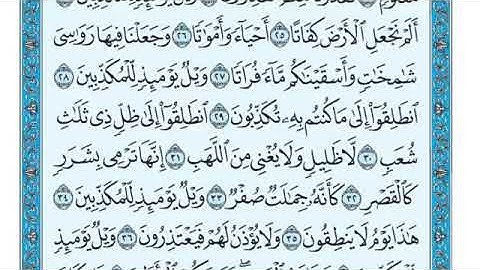 أَلَمْ نَجْعَلِ ٱلْأَرْضَ كِفَاتًا ٢٥ أَحْيَآءً وَأَمْوَٰتًا ٢٦ وَجَعَلْنَا فِيهَا رَوَٰسِىَ
شَٰمِخَٰتٍ وَأَسْقَيْنَٰكُم مَّآءً فُرَاتًا ٢٧ وَيْلٌ يَوْمَئِذٍ لِّلْمُكَذِّبِينَ ٢٨
ٱنطَلِقُوٓا۟ إِلَىٰ مَا كُنتُم بِهِۦ تُكَذِّبُونَ ٢٩ ٱنطَلِقُوٓا۟ إِلَىٰ ظِلٍّ ذِى ثَلَٰثِ
شُعَبٍ ٣٠ لَّا ظَلِيلٍ وَلَا يُغْنِى مِنَ ٱللَّهَبِ ٣١ إِنَّهَا تَرْمِى بِشَرَرٍ
كَٱلْقَصْرِ ٣٢ كَأَنَّهُۥ جِمَٰلَتٌ صُفْرٌ ٣٣ وَيْلٌ يَوْمَئِذٍ لِّلْمُكَذِّبِينَ ٣٤
هَٰذَا يَوْمُ لَا يَنطِقُونَ ٣٥ وَلَا يُؤْذَنُ لَهُمْ فَيَعْتَذِرُونَ ٣٦ وَيْلٌ يَوْمَئِذٍ